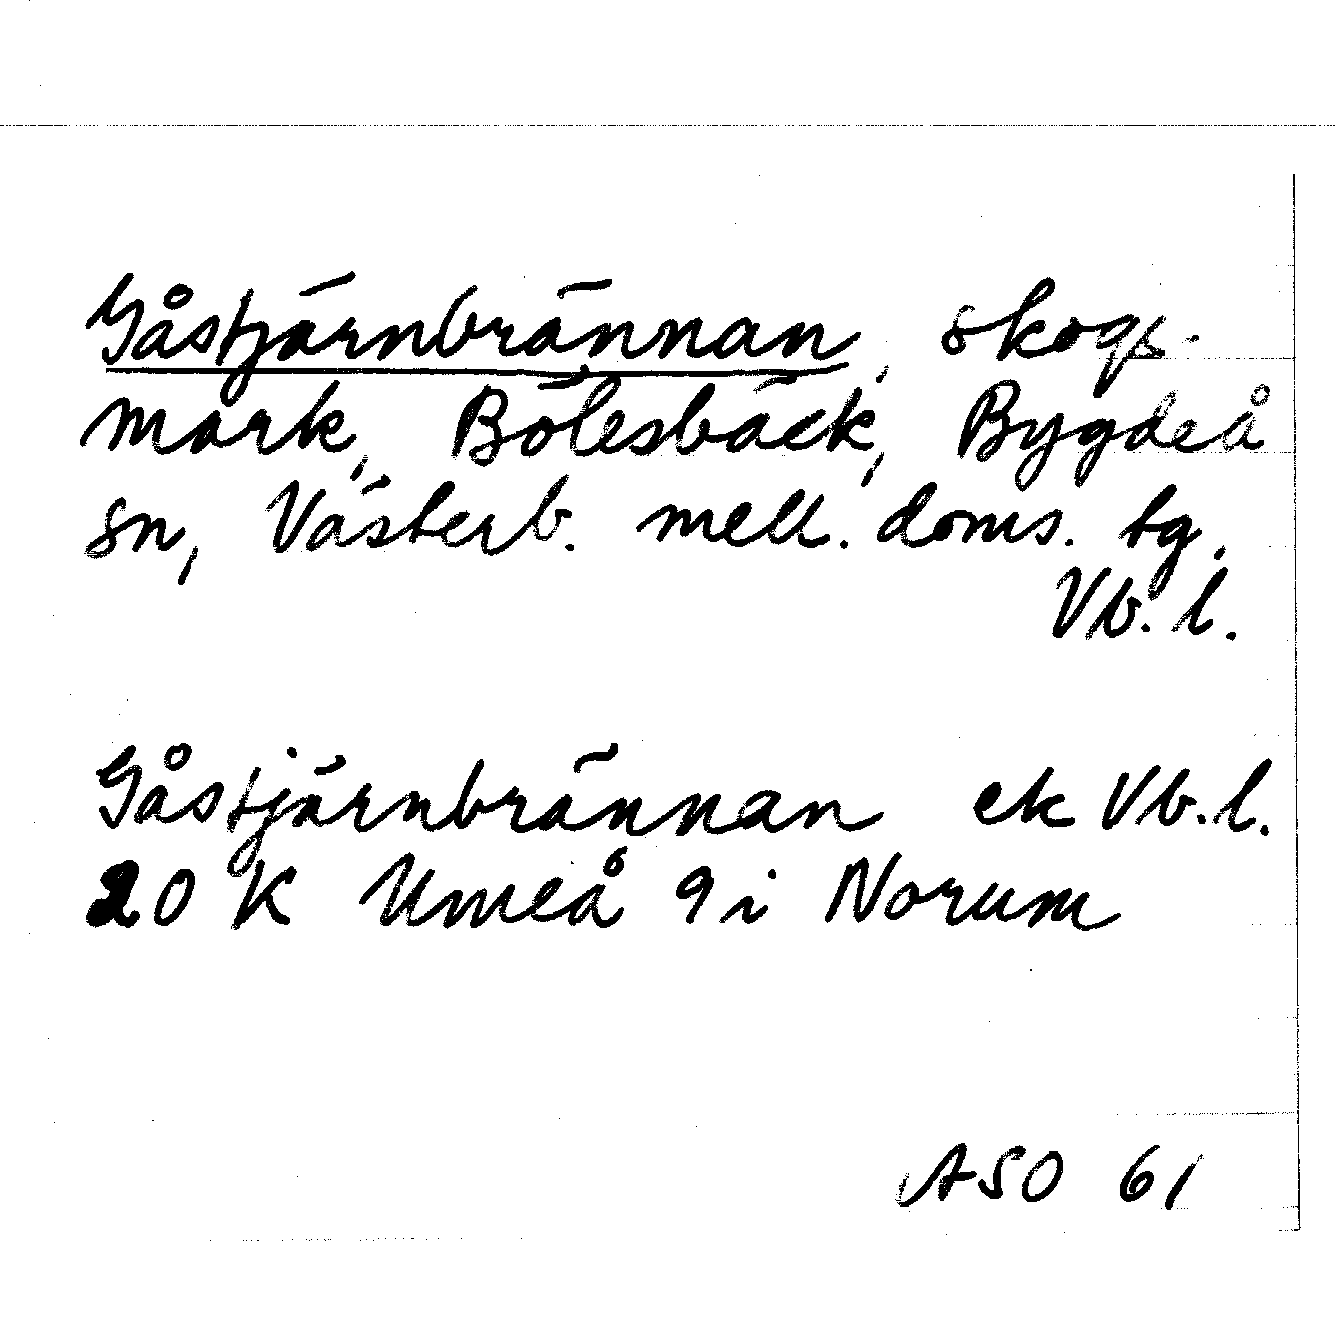 Gåstjärnbrännan, skogs-
mark, Bölesbäck, Bygdeå
sn, Västerb. mell. doms. tg.
Vb. l.
Gåstjärnbrännan ek Vb. l.
20 K Umeå 9 i Norum
ASO 61